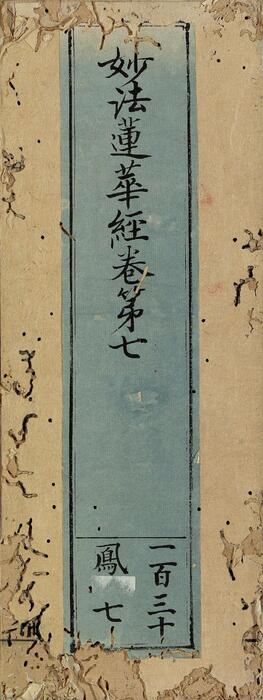 妙法蓮華經卷第七
一百三十
鳳七